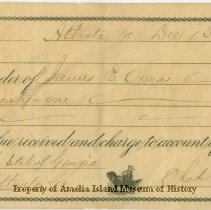 Atlanta Ga Dec 15
der of James E. Curas
ty-one
lue received and charge to account of
State of Georgia
Property of Amelia Island Museum of History